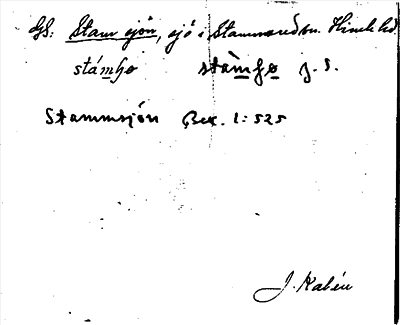 GS: Stamsjön, sjö i Stammaredsn. Himle hd.
stámʃø stàmʃø J. S.
Stammsjön Bex. 1:525
J. Kalén